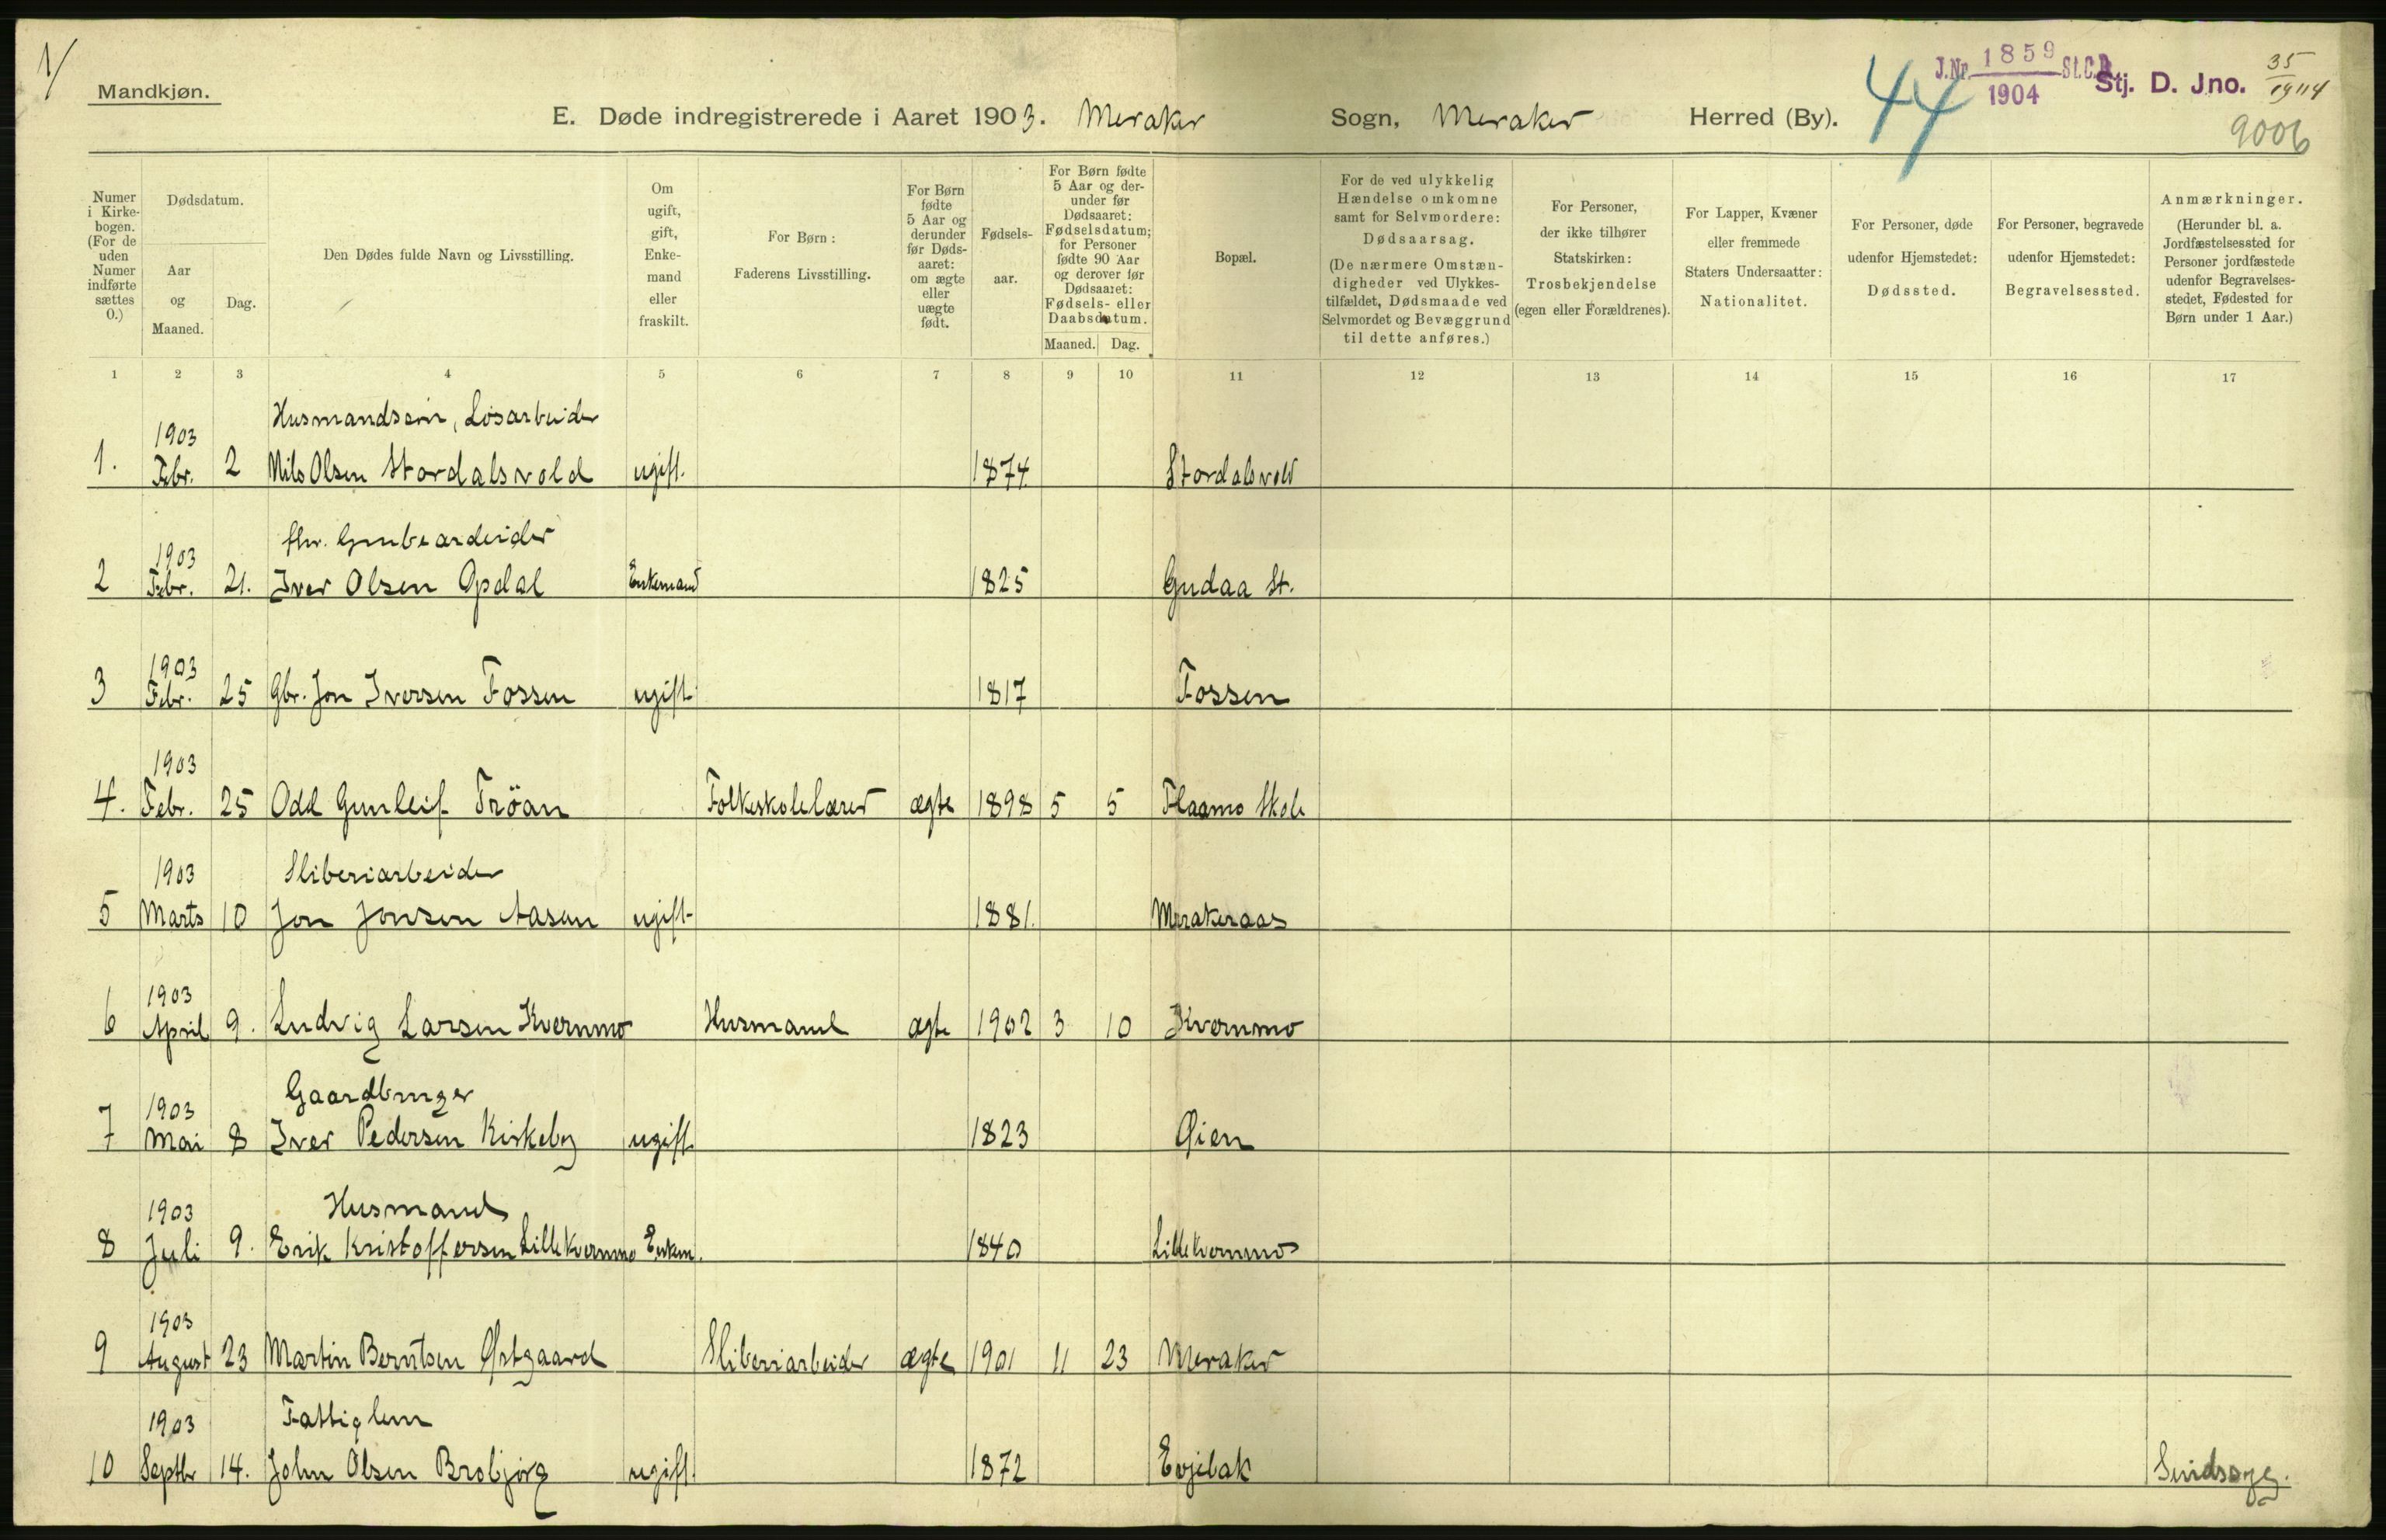 1/
Mandkjøn.
J.Nr. 1859 St.C.B.
1904
Stj. D. Jno. 35
44
9006
E. Døde indregistrerede i Aaret 1903. Meraker Sogn, Meraker Herred (By).
Numer i Kirkebogen. (For de uden Numer indførte sættes 0.)
Dødsdatum.
Aar og Maaned.
Dag.
Den Dødes fulde Navn og Livsstilling.
Om ugift, gift, Enkemand eller fraskilt.
For Børn:
Faderens Livsstilling.
For Børn fødte 5 Aar og derunder før Dødsaaret: om ægte eller uægte født.
Fødselsaar.
For Børn fødte 5 Aar og derunder før Dødsaaret: Fødselsdatum; for Personer fødte 90 Aar og derover før Dødsaaret: Fødsels- eller Daabsdatum.
Maaned. Dag.
Bopæl.
For de ved ulykkelig Hændelse omkomne samt for Selvmordere: Dødsaarsag.
(De nærmere Omstændigheder ved Ulykkestilfældet, Dødsmaade ved Selvmordet og Bevæggrund til dette anføres.)
For Personer, der ikke tilhører Statskirken: Trosbekjendelse (egen eller Forældrenes).
For Lapper, Kvæner eller fremmede Staters Undersaatter: Nationalitet.
For Personer, døde udenfor Hjemstedet: Dødssted.
For Personer, begravede udenfor Hjemstedet: Begravelsessted.
Anmærkninger.
(Herunder bl. a. Jordfæstelsessted for Personer jordfæstede udenfor Begravelsesstedet, Fødested for Børn under 1 Aar.)
1 2 3 4 5 6 7 8 9 10 11 12 13 14 15 16 17
1903 Husmandssøn, Løsarbeider
1. Febr. 2 Nils Olsen Stordalsvold ugift. 1874 Stordalsvold
1903 fhv. Grubearbeider
2 Febr. 21. Iver Olsen Opdal Enkemand 1825 Gudaa St.
1903
3 Febr. 25 Gbr. Jon Iversen Fossen ugift 1817 Fossen
1903
4. Febr. 25 Odd Gunleif Tröan Folkeskolelærer ægte 1898 5 5 Flaamo Skole
1903 Sliberiarbeider
5 Marts 10 Jon Jonsen Aasen ugift 1881. Merakeraas
1903
6 April 9. Ludvig Larsen Kvernmo Husmand ægte 1902 3 10 Kvernmo
1903 Gaardbruger
7 Mai 8 Iver Pedersen Kirkeby ugift 1823 Øien
1903 Husmand
8 Juli 9. Erik Kristoffersen Lillekvernmo Enkem. 1840 Lillekvernmo
1903
9 August 23 Martin Berntsen Østgaard Sliberiarbeider ægte 1901 11 23 Meraker
1903 Fattiglem
10 Septbr 14. John Olsen Brobjørg ugift. 1872 Evjebak Sindssyg.